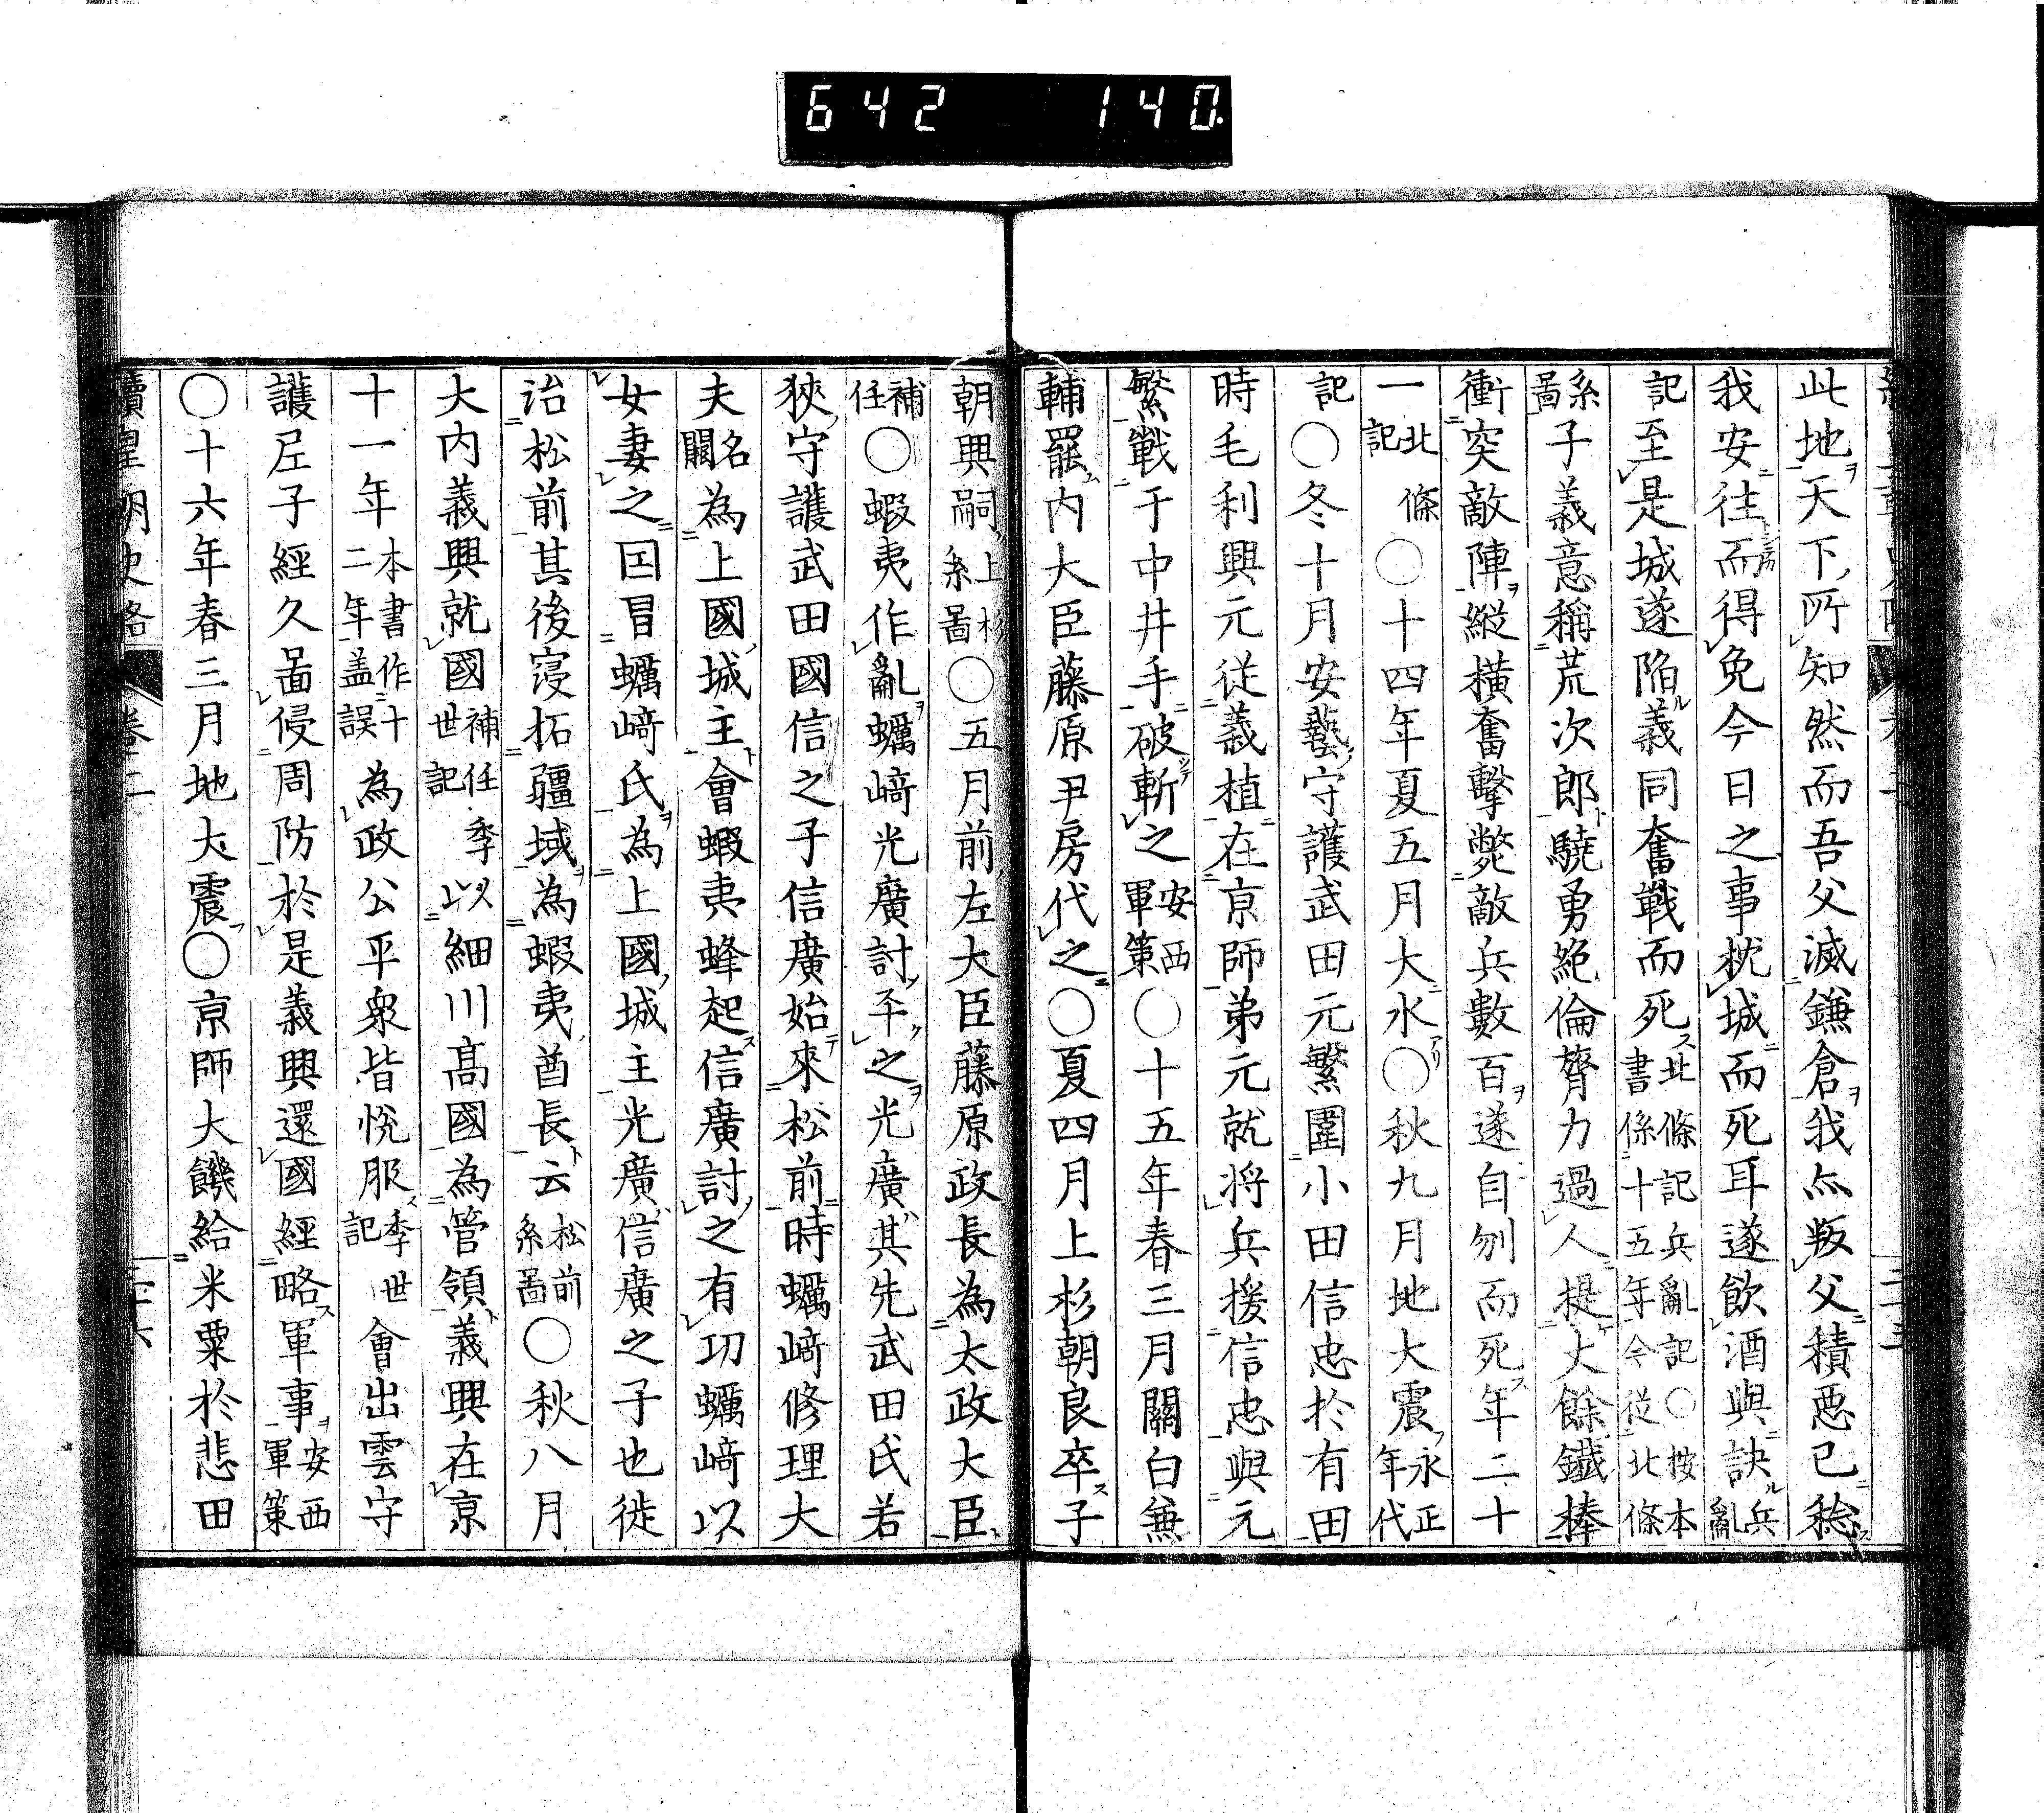 642 140
此地天下所知然而吾父滅鎌倉我亦叛父積悪已稔
我安往而得免今日之事枕城而死耳遂飲酒與訣兵亂
記至是城遂陥義同奮戰而死北條記兵亂記○按本書係十五年今従北條
系圖子義意稱荒次郎驍勇絶倫膂力過人提大餘鐵棒
衝突敵陣縦横奮擊斃敵兵數百遂自刎而死年二十
一北條記○十四年夏五月大水○秋九月地大震永正年代
記○冬十月安藝守護武田元繁圍小田信忠於有田
時毛利興元従義植在京師弟元就将兵援信忠與元
繁戰于中井手破斬之安西軍策○十五年春三月關白兼
輔罷内大臣藤原尹房代之○夏四月上杉朝良卒子
朝興嗣上杉系圖○五月前左大臣藤原政長為太政大臣
補任○蝦夷作亂蠣﨑光廣討平之光廣其先武田氏若
狹守護武田國信之子信廣始來松前時蠣﨑修理大
夫名闕為上國城主會蝦夷蜂起信廣討之有功蠣﨑以
女妻之因冒蠣﨑氏為上國城主光廣信廣之子也徙
治松前其後寖拓疆域為蝦夷酋長云松前系圖○秋八月
大内義興就國補任季世記以細川髙國為管領義興在京
十一年本書作十二年盖誤為政公平衆皆悦服季世記會出雲守
護尼子經久啚侵周防於是義興還國經略軍事安西軍策
○十六年春三月地大震○京師大饑給米粟於悲田
續皇朝史略 卷二 二十六